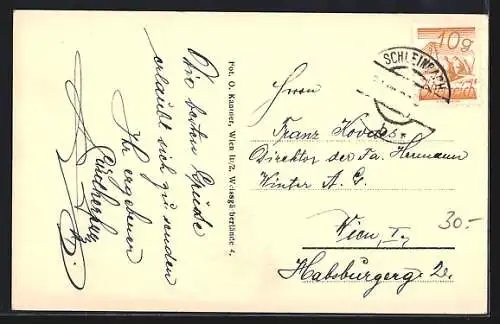 Die besten Grüße
erlaubt sich zu senden
Ihr ergebener
Pot. O. Kammer, Wien III/2, Weissgärberlände 4.
10g
SCHLEINBACH
Herrn
Franz
Direktor der Fa. Hermann
Winter A. G.
Wien, I.,
Habsburgerg. 2.
30.-